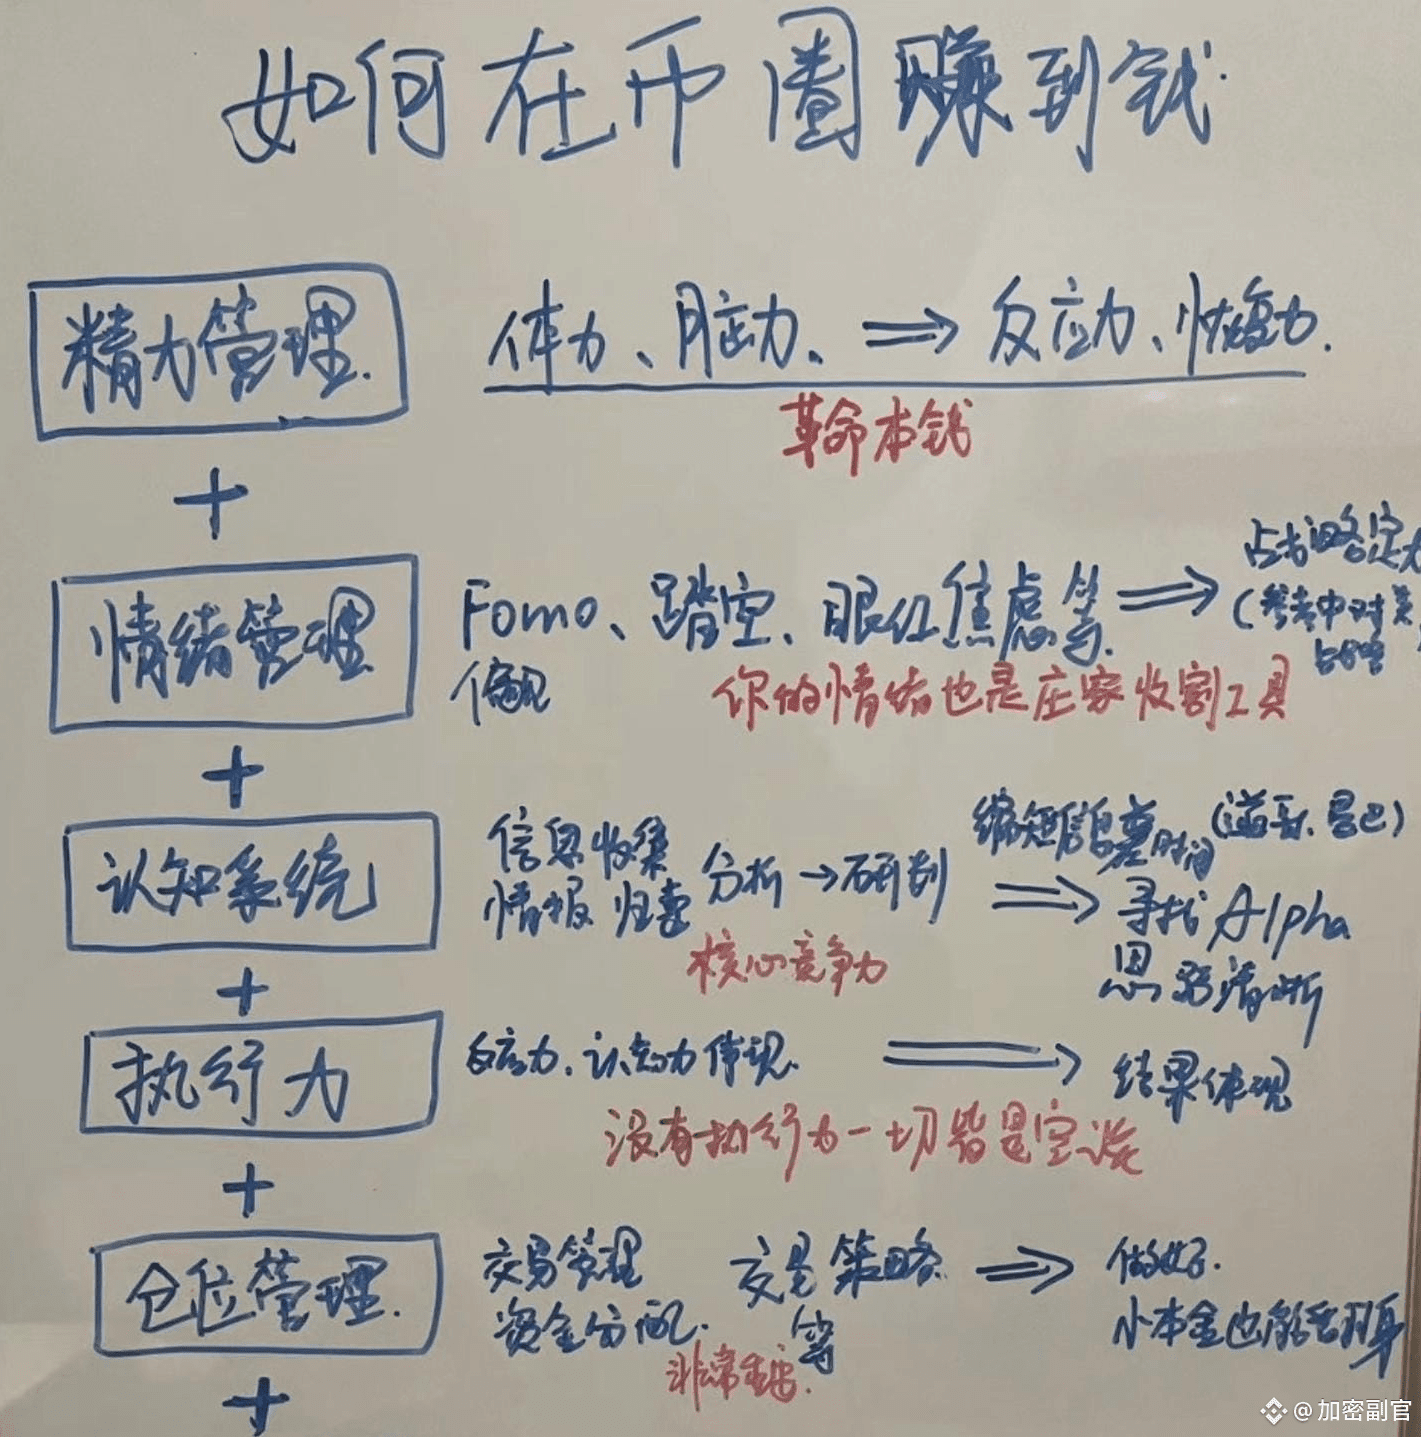 如何在币圈赚到钱.
精力管理.
体力、脑力、⇒反应力、恢复力.
革命本钱
+
情绪管理
Fomo、踏空、眼红焦虑等⇒
偏见
战略定力
(参考中对美
战略
你的情绪也是庄家收割工具
+
认知系统
信息收集
情报 归妻
分析→研判
⇒
缩短信息差时间(道哥、

寻找Alpha
思路清晰
核心竞争力
+
执行力
反应力、认知力体现. ⇒ 结果体现
没有执行力一切皆是空谈
+
仓位管理.
交易管理 交易策略 ⇒ 做好.
资金分配. 等 小本金也能翻身
非常重要.
+
@加密副官